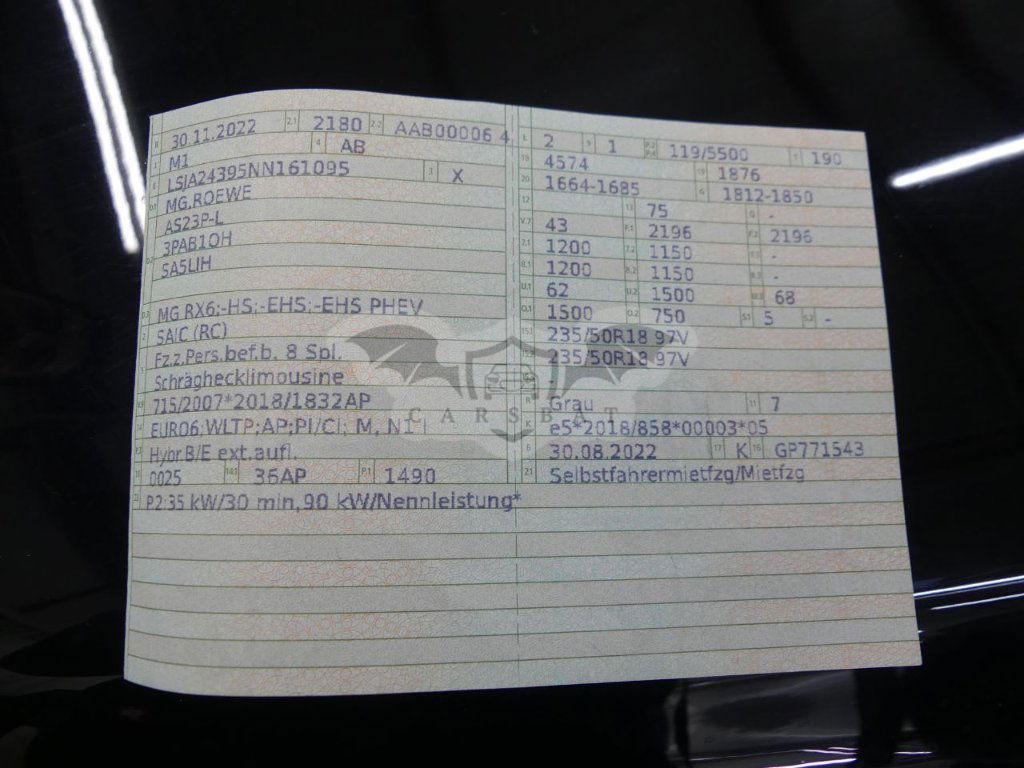 B 30.11.2022 2.1 2180 2.2 AAB00006 4
J M1 4 AB
E LSJA24395NN161095 3 X
D.1 MG,ROEWE
AS23P-L
3PAB1OH
D.2 SA5LIH
D.3 MG RX6;-HS;-EHS;-EHS PHEV
2 SAIC (RC)
5 Fz.z.Pers.bef.b. 8 Spl.
Schräghecklimousine
V.9 715/2007*2018/1832AP
14 EURO6;WLTP;AP;PI/CI; M, N1 I
P.3 Hybr.B/E ext.aufl.
10 0025 14.1 36AP P.1 1490
22 P.2:35 kW/30 min,90 kW/Nennleistung*
L 2 9 1 P.2 P.4 119/5500 T 190
18 4574 19 1876
20 1664-1685 G 1812-1850
12 13 75 Q -
V.7 43 F.1 2196 F.2 2196
7.1 1200 7.2 1150 7.3 -
8.1 1200 8.2 1150 8.3 -
U.1 62 U.2 1500 U.3 68
O.1 1500 O.2 750 S.1 5 S.2 -
15.1 235/50R18 97V
15.2 235/50R18 97V
-
R Grau 11 7
K e5*2018/858*00003*05
6 30.08.2022 17 K 16 GP771543
21 Selbstfahrermietfzg/Mietfzg
CARSBAT